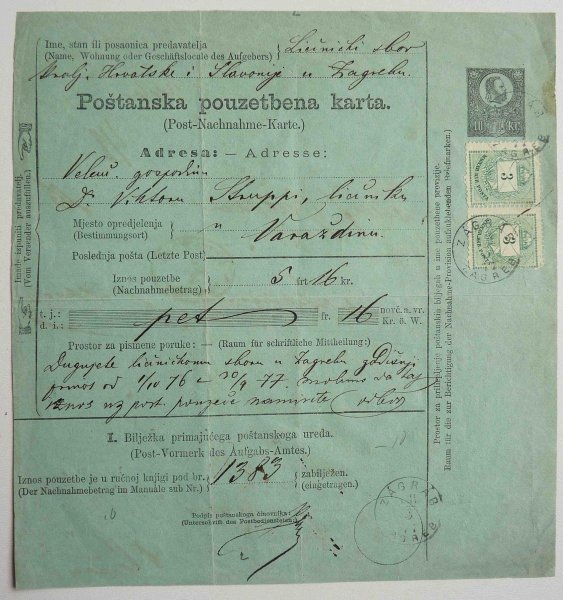 Ime, stan ili posaonica predavatelja
(Name, Wohnung oder Geschäftslocule des Aufgebers)
Liečnički sbor
kralj. Hrvatske i Slavonije u Zagrebu.
Poštanska pouzetbena karta.
(Post-Nachnahme-Karte.)
Adresa: — Adresse:
Velem. gospodinu
Dr Viktoru Struppi, liečniku
Mjesto opredjeljenja
(Bestimmungsort)
u Varaždinu
Poslednja pošta (Letzte Post)
Iznos pouzetbe
(Nachnahmebetrag)
5 frt 16 kr.
t. j.:
d. i.:
pet
fr. 16
novč. a. vr.
Kr. ö. W.
Prostor za pismene poruke: — (Raum für schriftliche Mittheilung:)
Dugujete liečničkomu sboru u Zagrebu godišnji
prinos od 1/10 76 30/9 77. molimo da taj
iznos uz post. pouzeće namirite odbor
I. Bilježka primajućega poštanskoga ureda.
(Post-Vormerk des Aufgabs-Amtes.)
Iznos pouzetbe je u ručnoj knjigi pod br.
(Der Nachnahmebetrag im Manuale sub Nr.)
1383
zabilježen.
(eingetragen.)
Podpis poštanskoga činovnika:
(Unterschrift des Postbediensteten)
Imade izpuniti predavatelj.
(Vom Versender auszufüllen.)
Prostor za prilepljenje poštanskih biljegah u ime pouzetbene provizije.
Raum für die zur Berichtigung der Nachnahme-Provision aufzuklebenden Briefmarken.
10 Kr.
3
3
ZAGREB
ZAGREB
ZAGREB
ZAGREB
AGREB